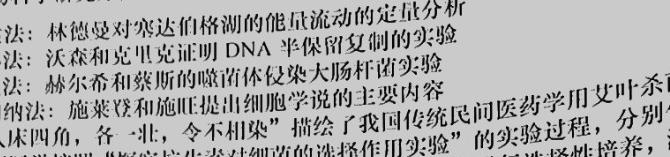 法：林德曼对塞达伯格湖的能量流动的定量分析
法：沃森和克里克证明 DNA 半保留复制的实验
法：赫尔希和蔡斯的噬菌体侵染大肠杆菌实验
纳法：施莱登和施旺提出细胞学说的主要内容
床四角，各一壮，令不相染”描绘了我国传统民间医药学用艾叶杀
对细菌的选择作用实验”的实验过程，分别
选择性培养，